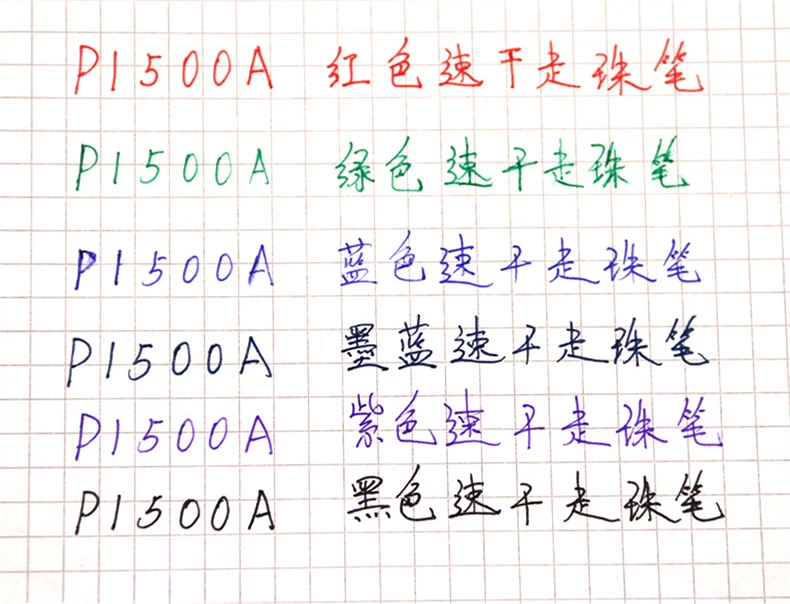 P1500A 红色速干走珠笔
P1500A 绿色速干走珠笔
P1500A 蓝色速干走珠笔
P1500A 墨蓝速干走珠笔
P1500A 紫色速干走珠笔
P1500A 黑色速干走珠笔